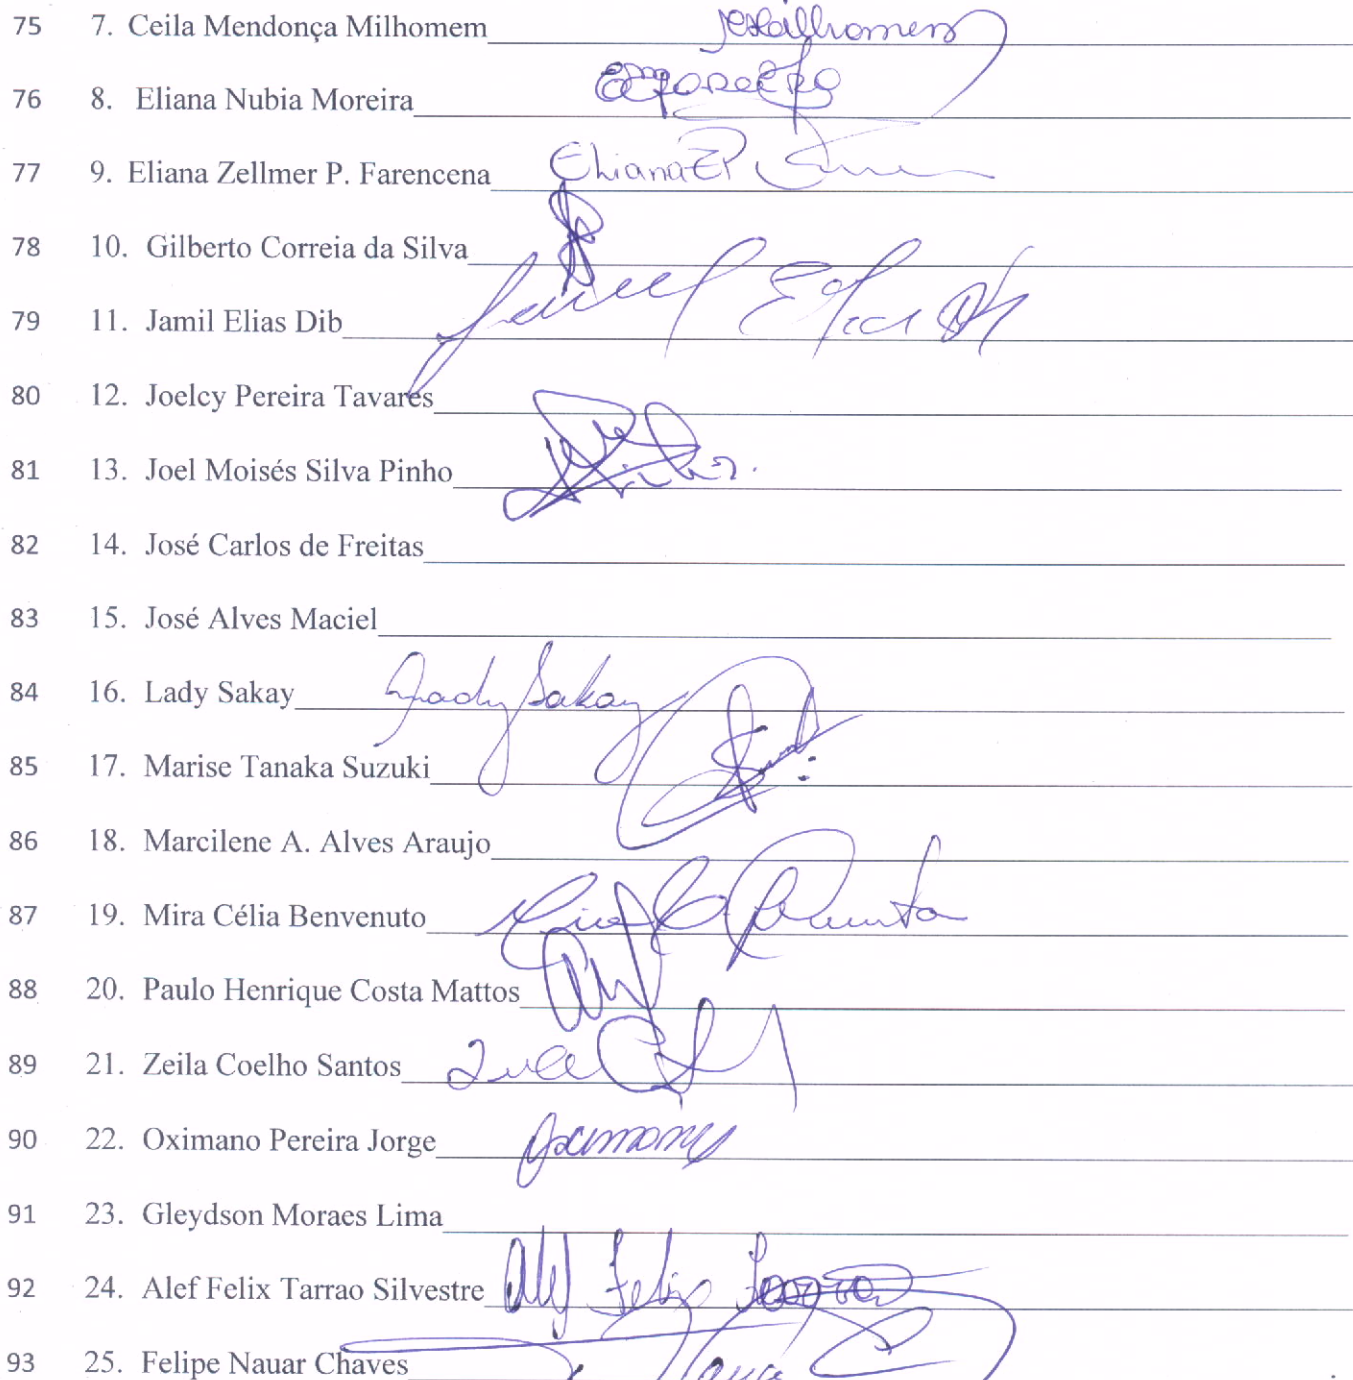 75 7. Ceila Mendonça Milhomem
76 8. Eliana Nubia Moreira
77 9. Eliana Zellmer P. Farencena Eliana ZP
78 10. Gilberto Correia da Silva
79 11. Jamil Elias Dib Jamil Elias Dib
80 12. Joelcy Pereira Tavares
81 13. Joel Moisés Silva Pinho
82 14. José Carlos de Freitas
83 15. José Alves Maciel
84 16. Lady Sakay Lady Sakay
85 17. Marise Tanaka Suzuki
86 18. Marcilene A. Alves Araujo
87 19. Mira Célia Benvenuto
88 20. Paulo Henrique Costa Mattos
89 21. Zeila Coelho Santos
90 22. Oximano Pereira Jorge Oximano
91 23. Gleydson Moraes Lima
92 24. Alef Felix Tarrao Silvestre Alef Felix Tarrao
93 25. Felipe Nauar Chaves